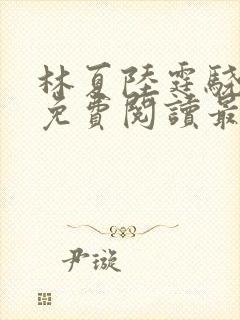 林夏陸霆驍
免費閱讀最
尹璇